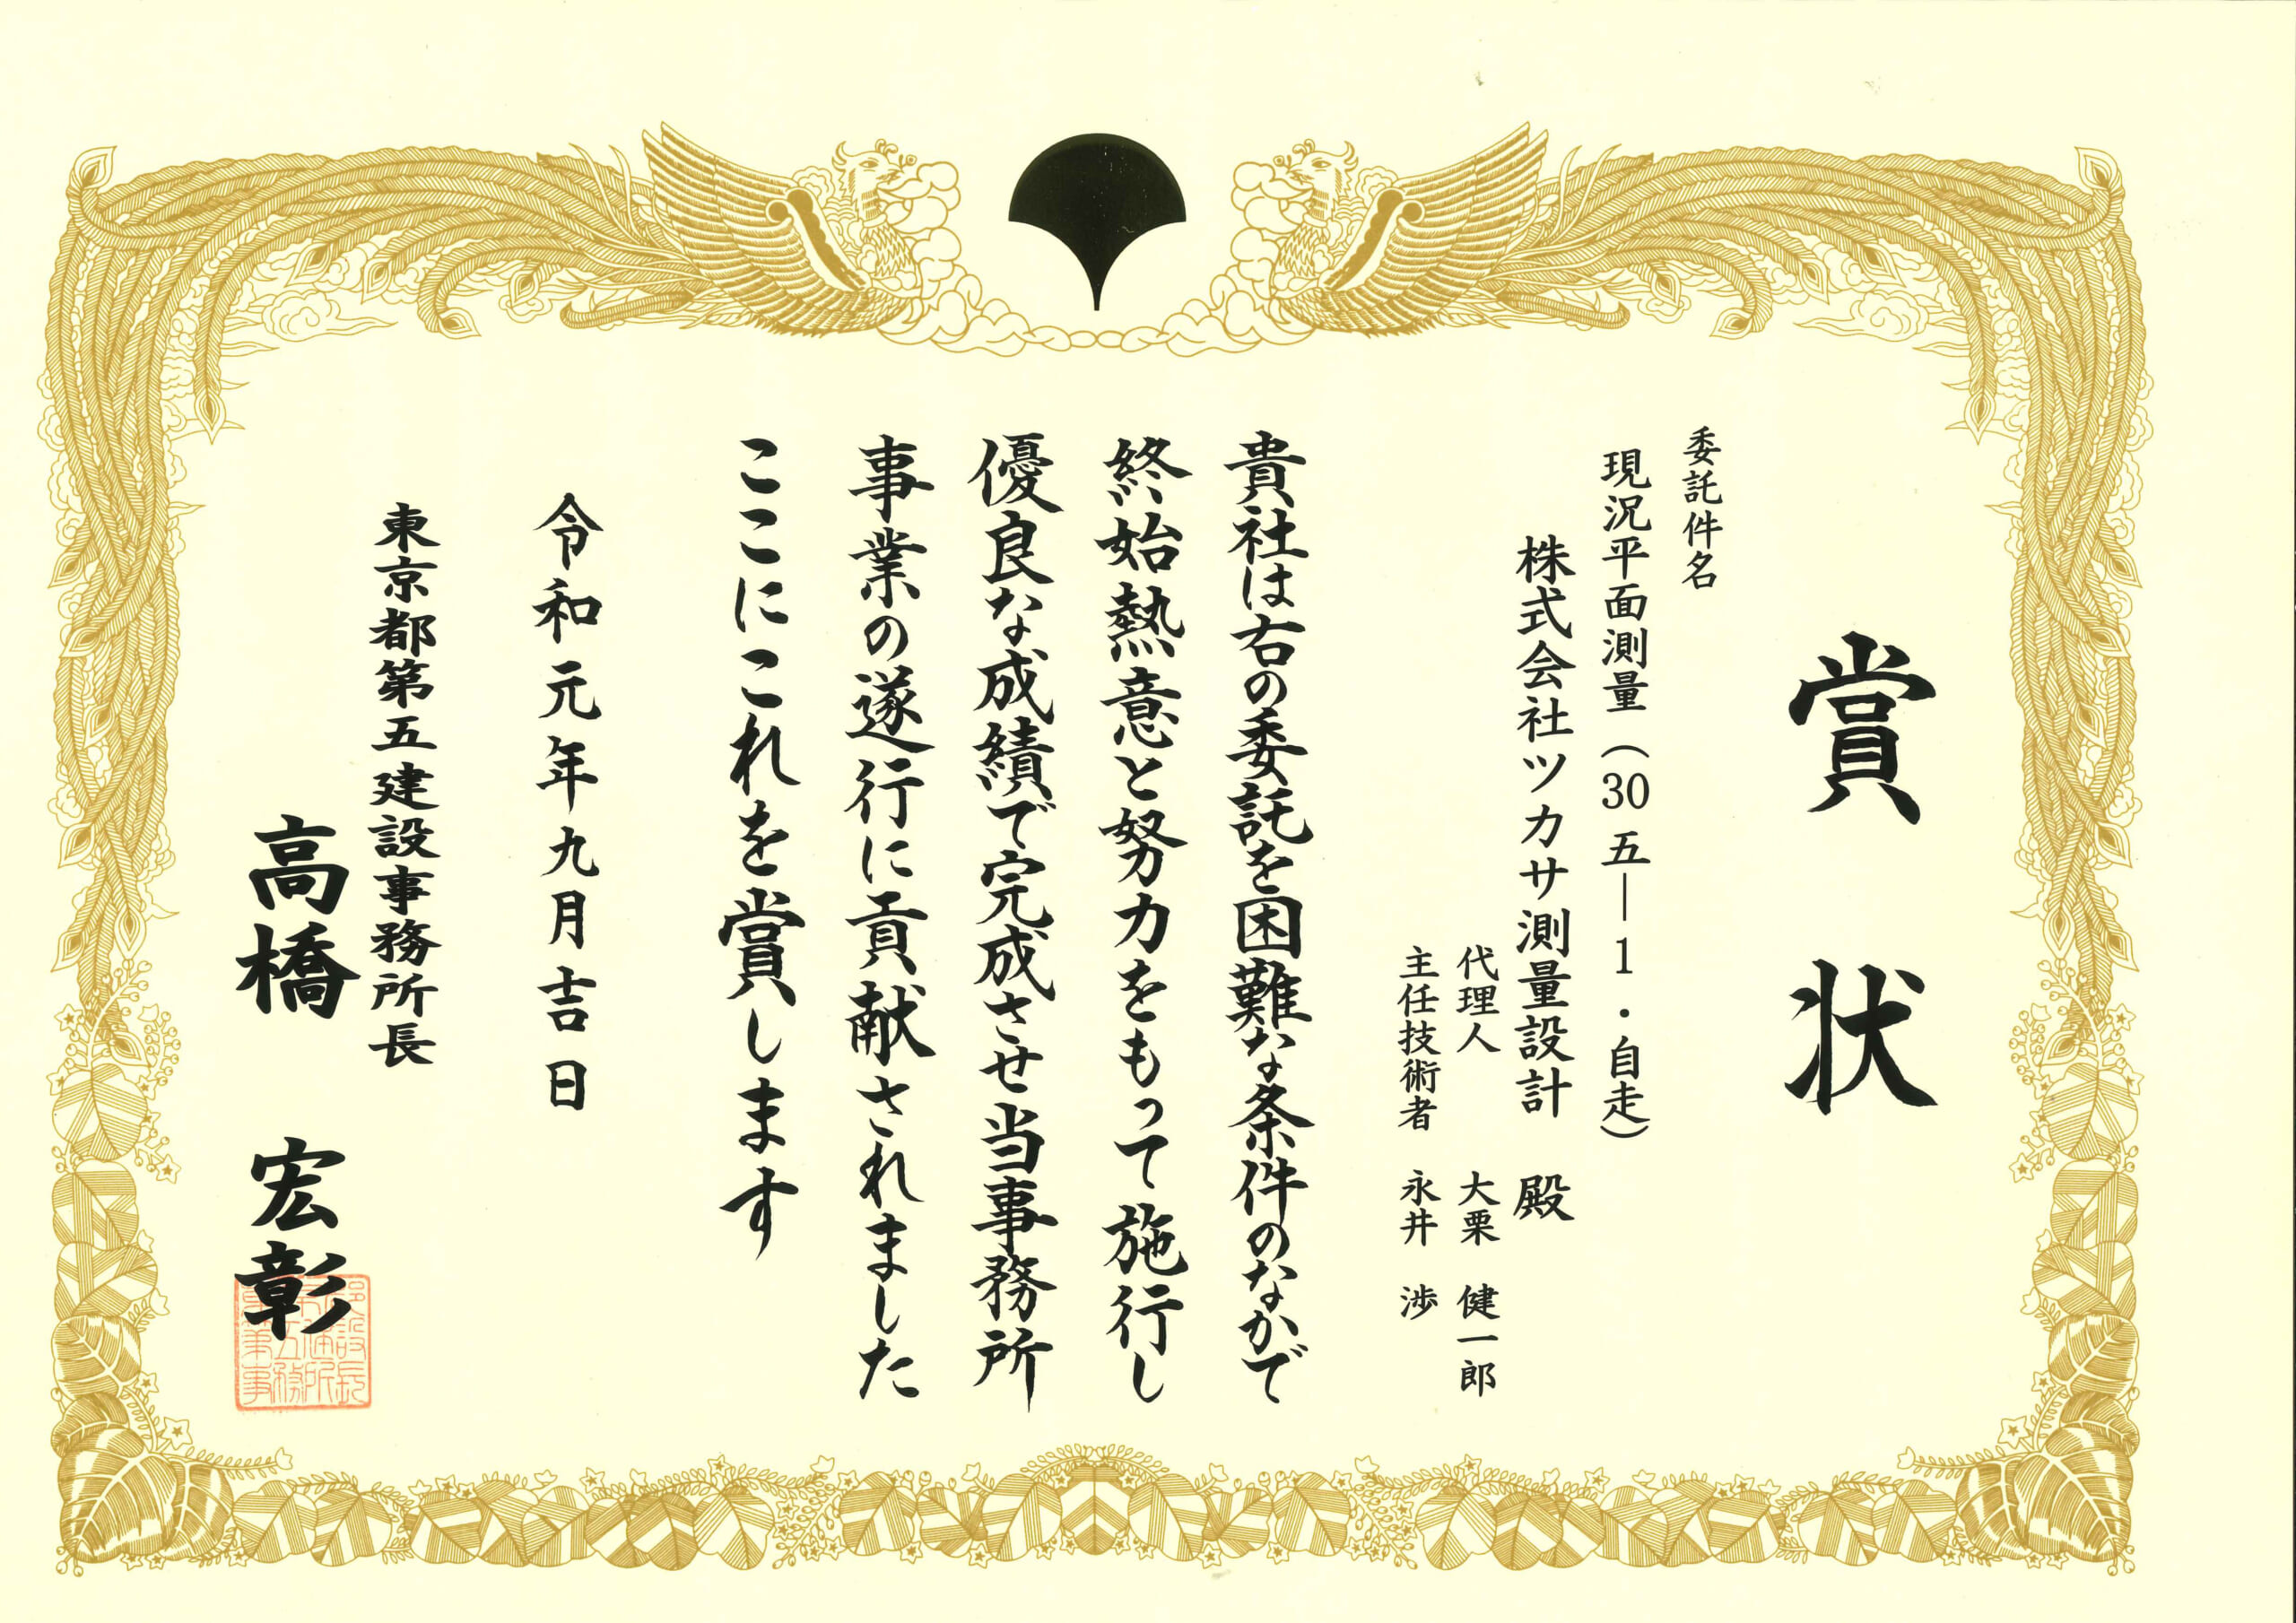 賞状
委託件名
現況平面測量（30五―1・自走）
株式会社ツカサ測量設計 殿
代理人 大栗 健一郎
主任技術者 永井 渉
貴社は右の委託を困難な条件のなかで
終始熱意と努力をもって施行し
優良な成績で完成させ当事務所
事業の遂行に貢献されました
ここにこれを賞します
令和元年九月吉日
東京都第五建設事務所長
高橋 宏彰